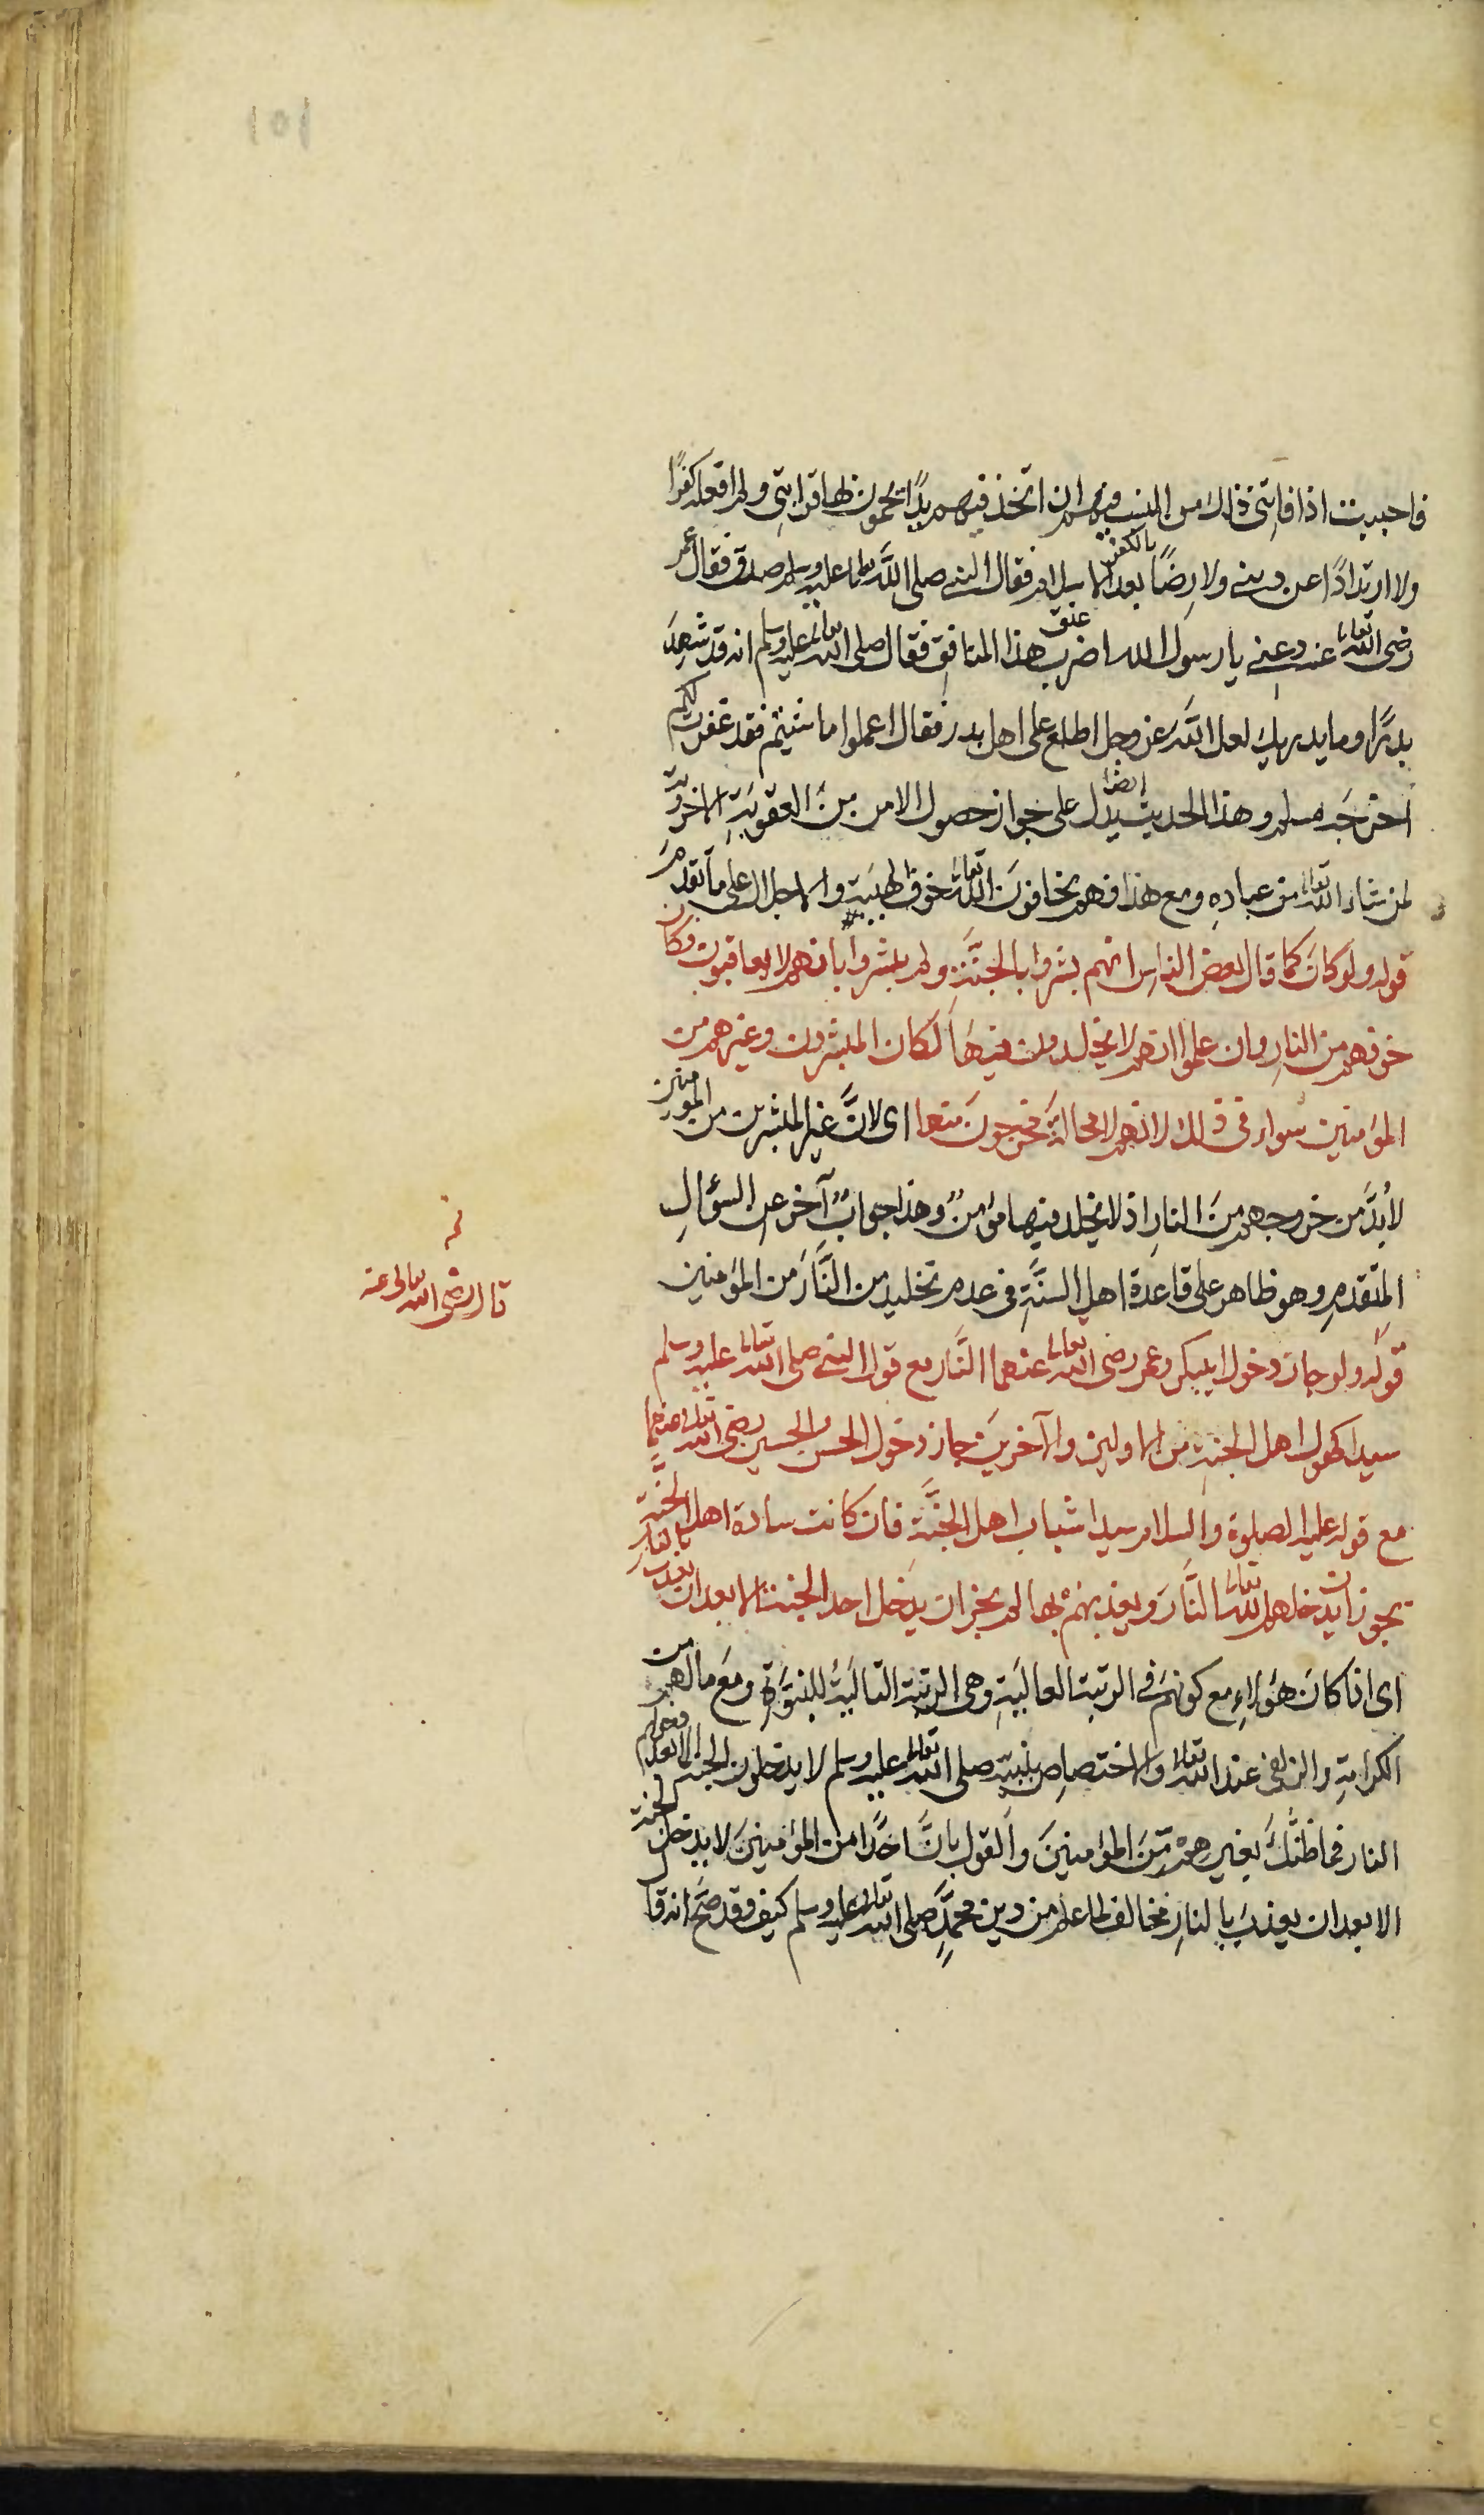 فاحببت اذا فاتنى ذلك من النسب فيهم ان اتخذ فيهم يدًا يحمون بها قرابتى ولم افعله كفرًا
ولا ارتدادًا عن دينى ولا رضًا بالكفر بعد الاسلام فقال النبى صلى الله تعالى عليه وسلم صدق فقال عمر
رضى الله تعالى عنه دعنى يا رسول الله اضرب عنق هذا المنافق فقال صلى الله تعالى عليه وسلم انه قد شهد
بدرًا وما يدريك لعل الله عز وجل اطلع على اهل بدر فقال اعملوا ما شئتم فقد غفرت لكم
اخرجه مسلم وهذا الحديث ايضا يدل على جواز حصول الامن من العقوبة الاخروية
لمن شاء الله تعالى من عباده ومع هذا فهم يخافون الله تعالى خوف الهيبة والاجلال على ما تقدم
قوله ولو كان كما قال بعض الناس انهم بشروا بالجنة ولم يبشروا بانهم لا يعاقبون وكان
خوفهم من النار وان علموا انهم لا يخلدون فيها لكان المبشرون وغيرهم من
المؤمنين سواء فى ذلك لانهم لا محالة مخرجون منها اى لان غير المبشرين من المومنين
لا بد من خروجهم من النار اذ لا يخلد فيها مؤمن وهذا جواب آخر عن السؤال
المتقدم وهو ظاهر على قاعدة اهل السنة فى عدم تخليد من النار من المؤمنين
قوله ولو جاز دخول ابى بكر وعمر رضى الله تعالى عنهما النار مع قول النبى صلى الله تعالى عليه وسلم
سيدا كهول اهل الجنة من الاولين والآخرين جاز دخول الحسن والحسين رضى الله تعالى عنهما
مع قوله عليه الصلوة والسلام سيدا شباب اهل الجنة فان كانت سادة اهل الجنة
يجوز ان يدخلهم الله تعالى النار ويعذبهم بها لم يجز ان يدخل احد الجنة الا بعد ان يعذب بالنار
اى اذا كان هؤلاء مع كونهم فى الرتبة العالية وهى الرتبة التالية للنبوة ومع ما لهم من
الكرامة والزلفى عند الله تعالى والاختصاص بنبيه صلى الله تعالى عليه وسلم لا يدخلون الجنة الا بعد دخولهم
النار فما ظنك بغيرهم من المؤمنين والقول بان احدًا من المؤمنين لا يدخل الجنة
الا بعد ان يعذب بالنار مخالف لما علم من دين محمد صلى الله تعالى عليه وسلم كيف وقد صح انه قا
قال رضى الله تعالى عنه